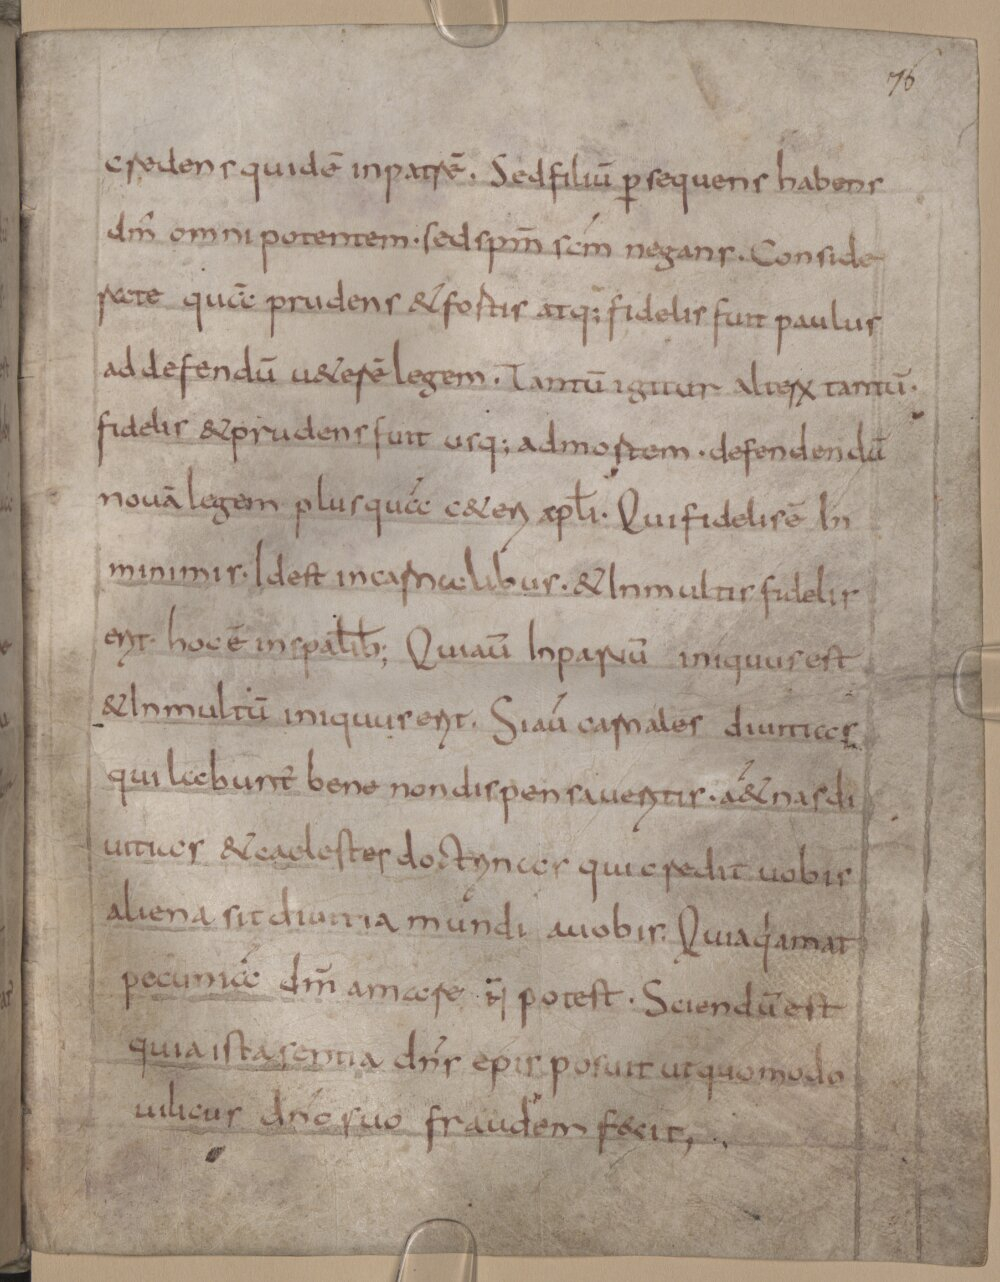 76
credens quidē inpatrē. Sed filiū ꝑsequens habens
dm̄ omnipotentem. sed spm̄ scm̄ negans. Conside
rate quā prudens & fortis atq; fidelis fuit paulus
ad defendū u&erē legem. Tantū igitur alterꝝ tantū.
fidelis & prudens fuit usq; ad mortem. defendendū
nouā legem plus quā c&eri apłi. Qui fidelis ē In
minimis. Idest incarnalibus. & Inmultis fidelis
erit. hoc ē inspałib; Quiaū Inparuū iniquus est
& Inmultū iniquus erit. Siaū carnales diuitias
qui labunt̄ bene non dispensaueritis. a&nas di
uitias & caelestes doctrinas qui credit uobis
aliena sit diuitia mundi auobis. Quia q amat
pecuniā dm̄ amare n̄ potest. Sciendū est
quia ista sentia dn̄s epis posuit ut quomodo
uilicus dn̄o suo fraudem fecit,